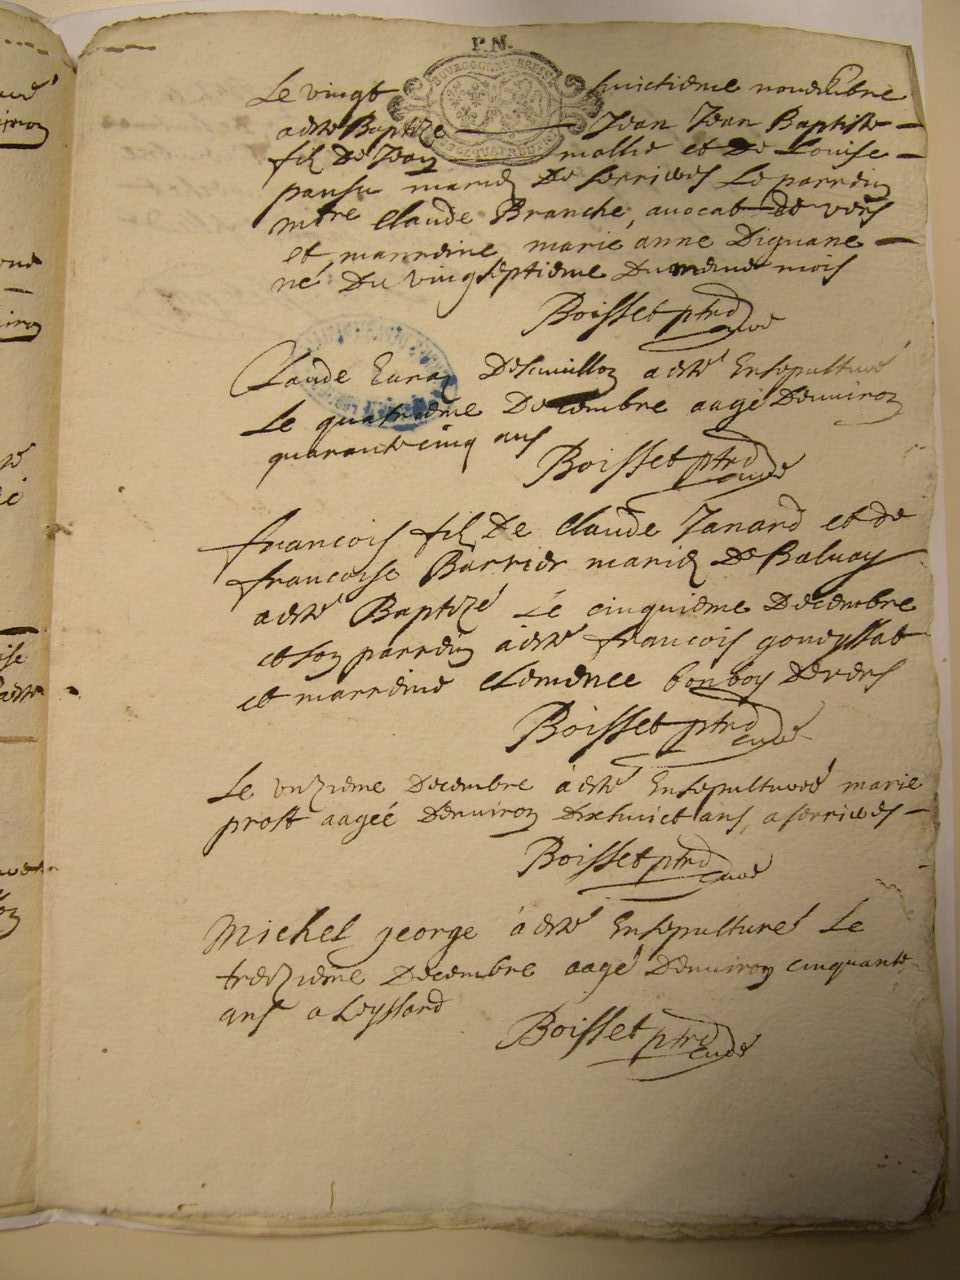 P.N.
BOURGOGNE ET BRESSE
Le vingt huictieme novembre
a esté Baptizé Jean Jean Baptiste
fils De Jean mollie et De Louise
pansu mariés De serrieres Le parrein
mtre Claude Branche, avocat de vers
et marreine marie anne Diguane
né Du vingtseptieme Du meme mois
Boisset ptre curé
Claude a esté Ensepulturé
Le quatrieme Decembre aagé Denviron
quarante cinq ans
Boisset ptre curé
francois fils De Claude Janard et de
francoise Barrier mariés De Baluay
a esté Baptizé Le cinquieme Decembre
et son parrein a esté francois gouyssat
et marreine Clemence bonboy Devers
Boisset ptre curé
Le unzieme Decembre a esté Ensepulturée marie
prost aagée Denviron Dixhuict ans, a serrieres
Boisset ptre curé
Michel george a esté Ensepulturé Le
treizieme Decembre aagé Denviron cinquante
ans a Leyssard
Boisset ptre curé